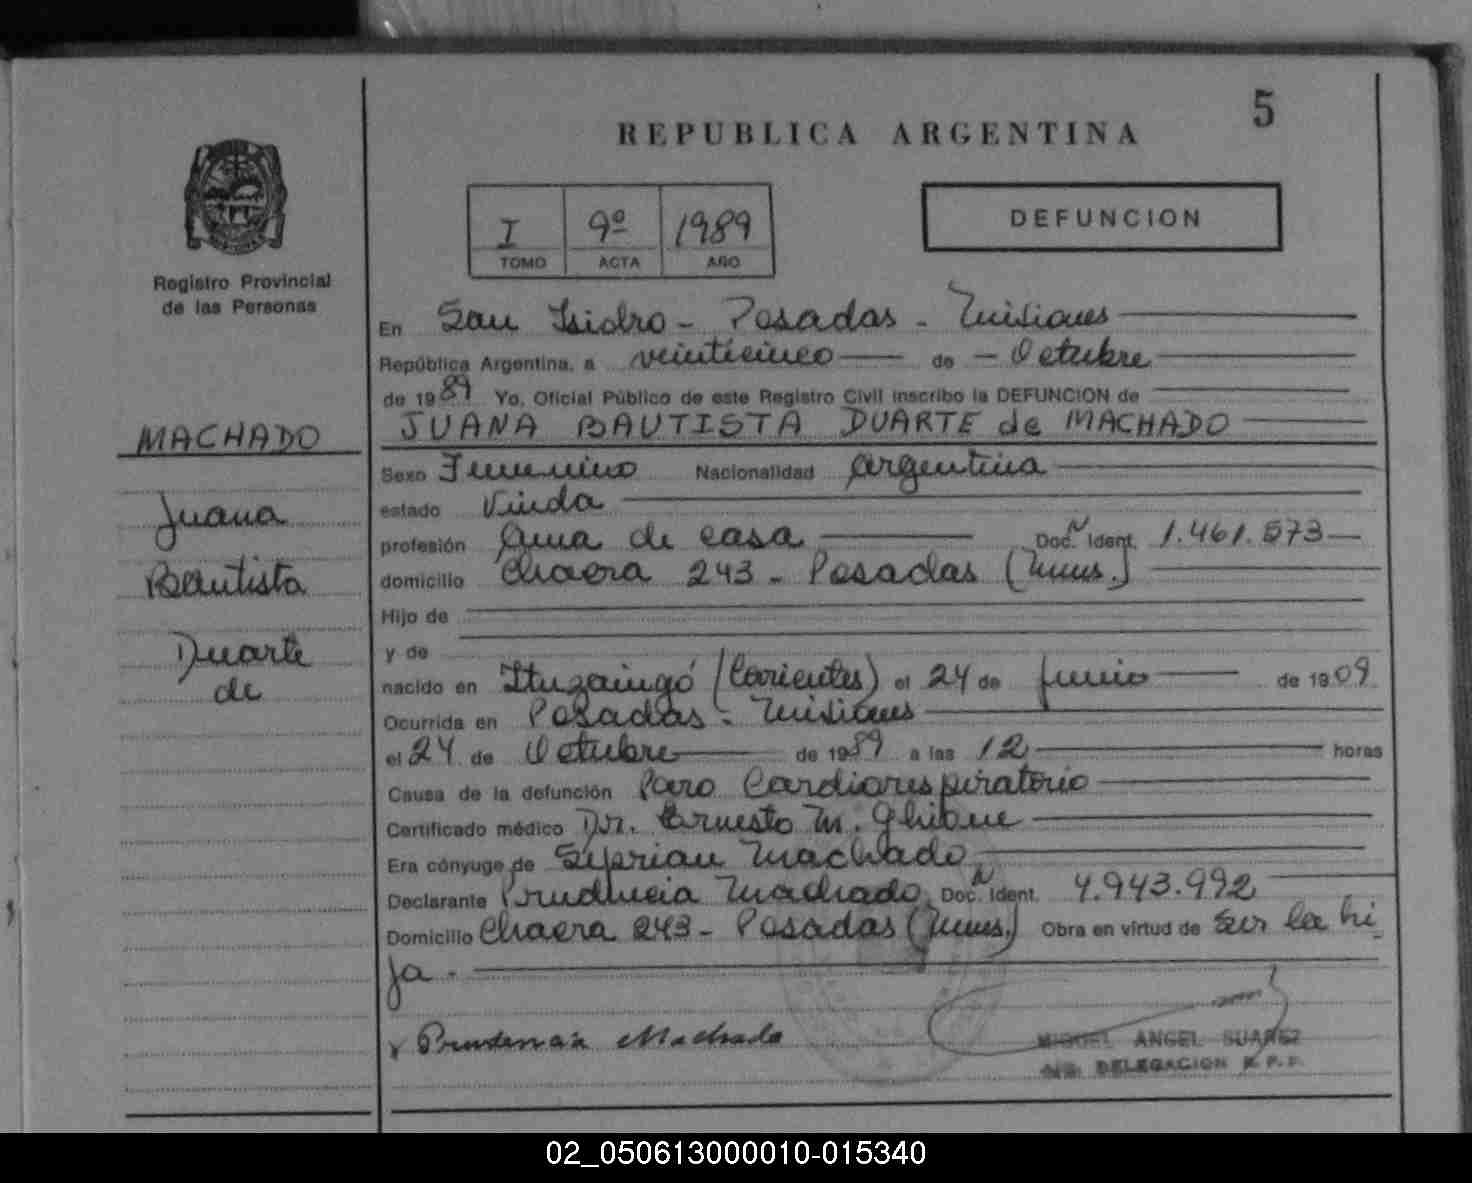 5
REPUBLICA ARGENTINA
DEFUNCION
I 9º 1989
TOMO ACTA AÑO
Registro Provincial
de las Personas
En San Isidro - Posadas - Misiones
República Argentina, a veinticinco de - Octubre
de 1989 Yo, Oficial Público de este Registro Civil inscribo la DEFUNCION de
MACHADO
JUANA BAUTISTA DUARTE de MACHADO
Sexo Femenino Nacionalidad Argentina
Juana
estado Viuda
profesión Ama de casa Doc. Ident. 1.461.573
Bautista
domicilio Chacra 243 - Posadas (Mnes.)
Hijo de
Duarte
y de
de
nacido en Ituzaingó (Corrientes) el 24 de Junio de 1909
Ocurrida en Posadas - Misiones
el 24 de Octubre de 1989 a las 12 horas
Causa de la defunción Paro Cardiorespiratorio
Certificado médico Dr. Ernesto M. Ghione
Era cónyuge de Siprian Machado
Declarante Prudencia Machado Doc. Ident. 4.943.992
Domicilio Chacra 243 - Posadas (Mnes.) Obra en virtud de Ser la hi
ja.
x Prudencia Machado
MIGUEL ANGEL SUAREZ
DELEGACION R.P.P.
02_050613000010-015340